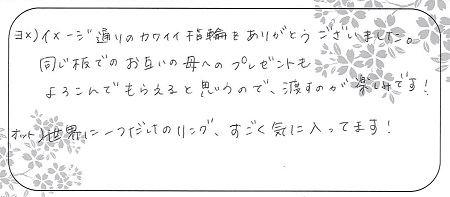 ヨメ)イメージ通りのカワイイ指輪をありがとうございました。
同じ板でのお互いの母へのプレゼントも
よろこんでもらえると思うので、渡すのが楽しみです!
オット)世界に一つだけのリング、すごく気に入ってます!